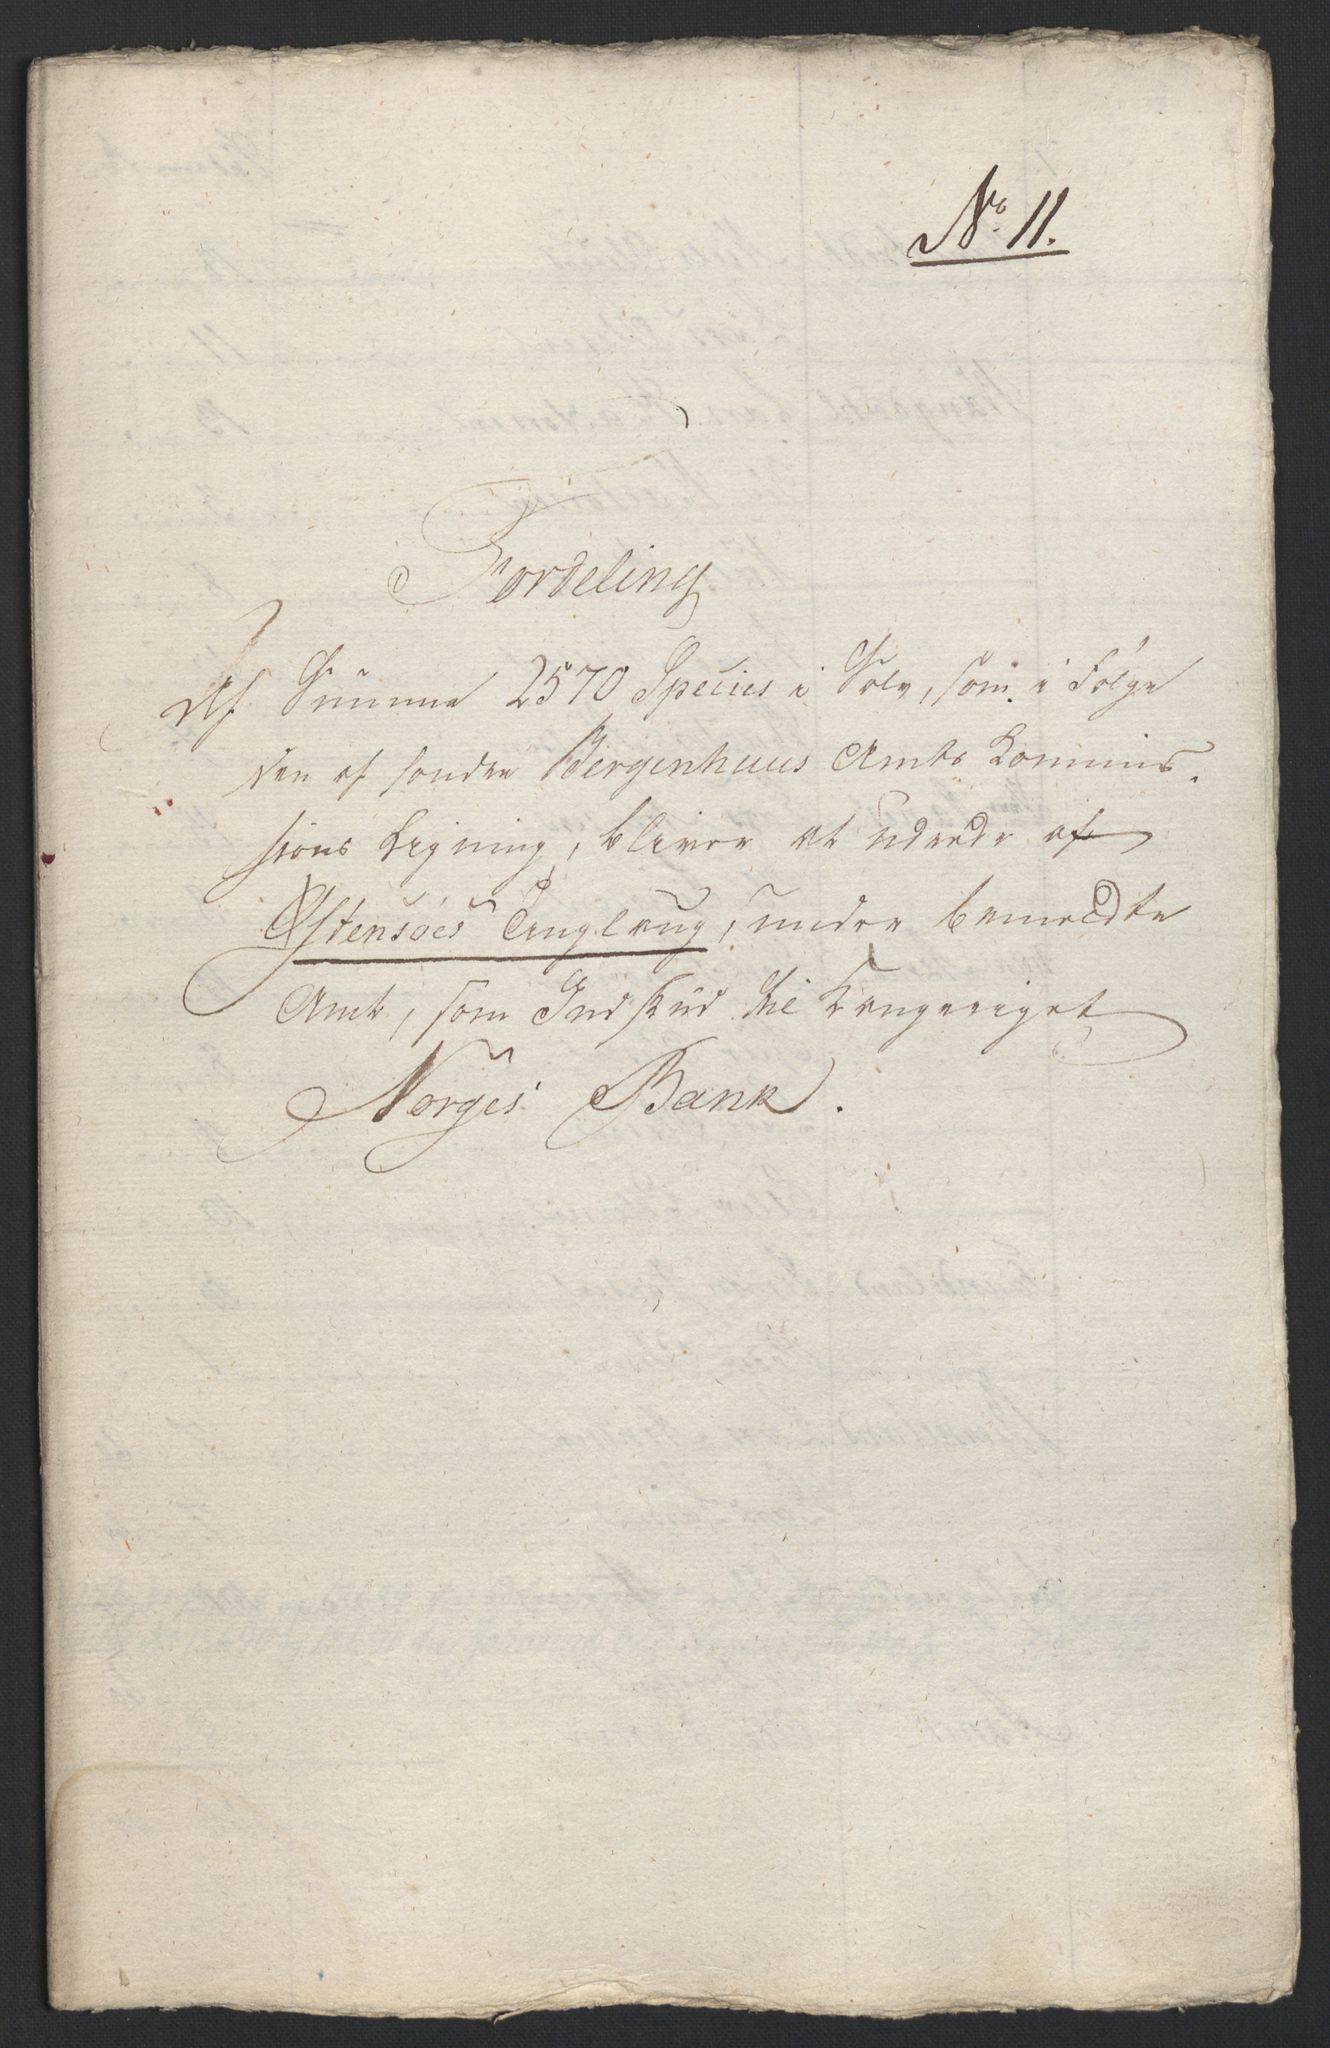 No 11.
Fordeling
Af Summa 2570 Species i Sølv, som i Følge
den af søndre Bergenhuus Amts Kommis-
sions Ligning, bliver at udrede af
Østensøes Tinglaug, under bemeldte
Amt, som Indskud til Kongeriget
Norges Bank.